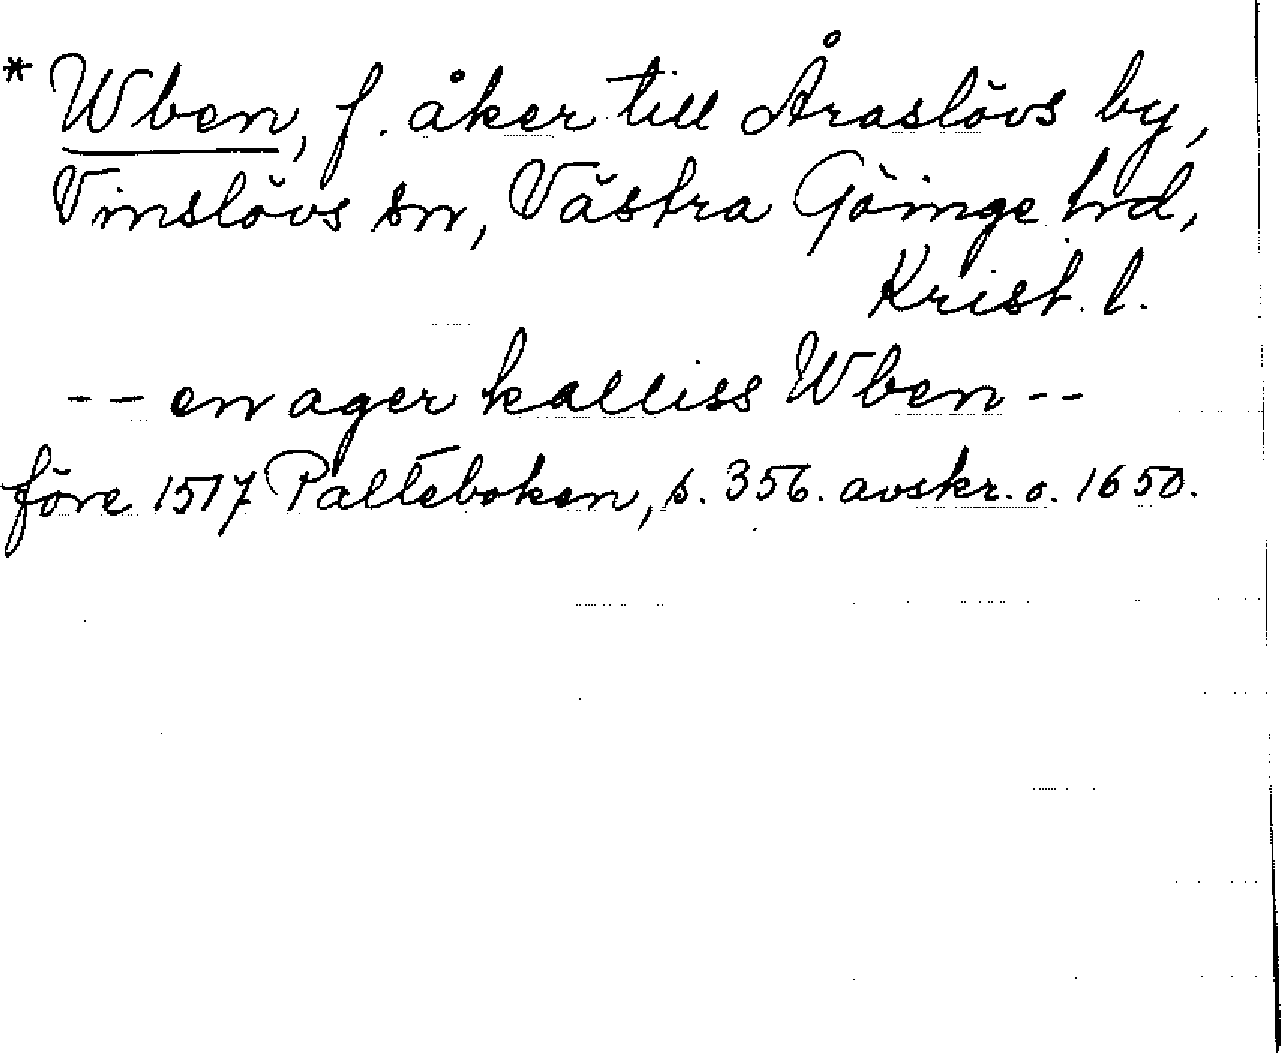 * Wben, f. åker till Åraslövs by,
Vinslövs sn, Västra Göinge hrd,
Krist. l.
-- en ager kalliss Wben --
före 1517 Palteboken, s. 356. avskr. o. 1650.